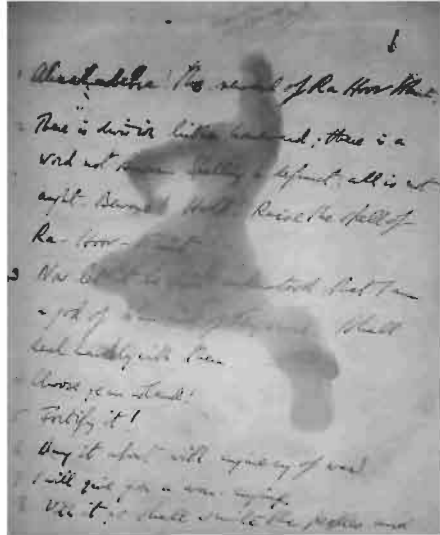 Abrahadabra! the reward of Ra Hoor Khut.
There is division hither homeward; there is a
word not known. Spelling is defunct; all is not
aught. Beware! Hold! Raise the spell of
Ra-Hoor-Khuit
3 Now let it be understood that I am
a god of War and of Vengeance. I shall
deal hardly with them
Choose ye an island!
Fortify it!
Dung it about with enginery of war
I will give you a war-engine
With it ye shall smite the peoples and